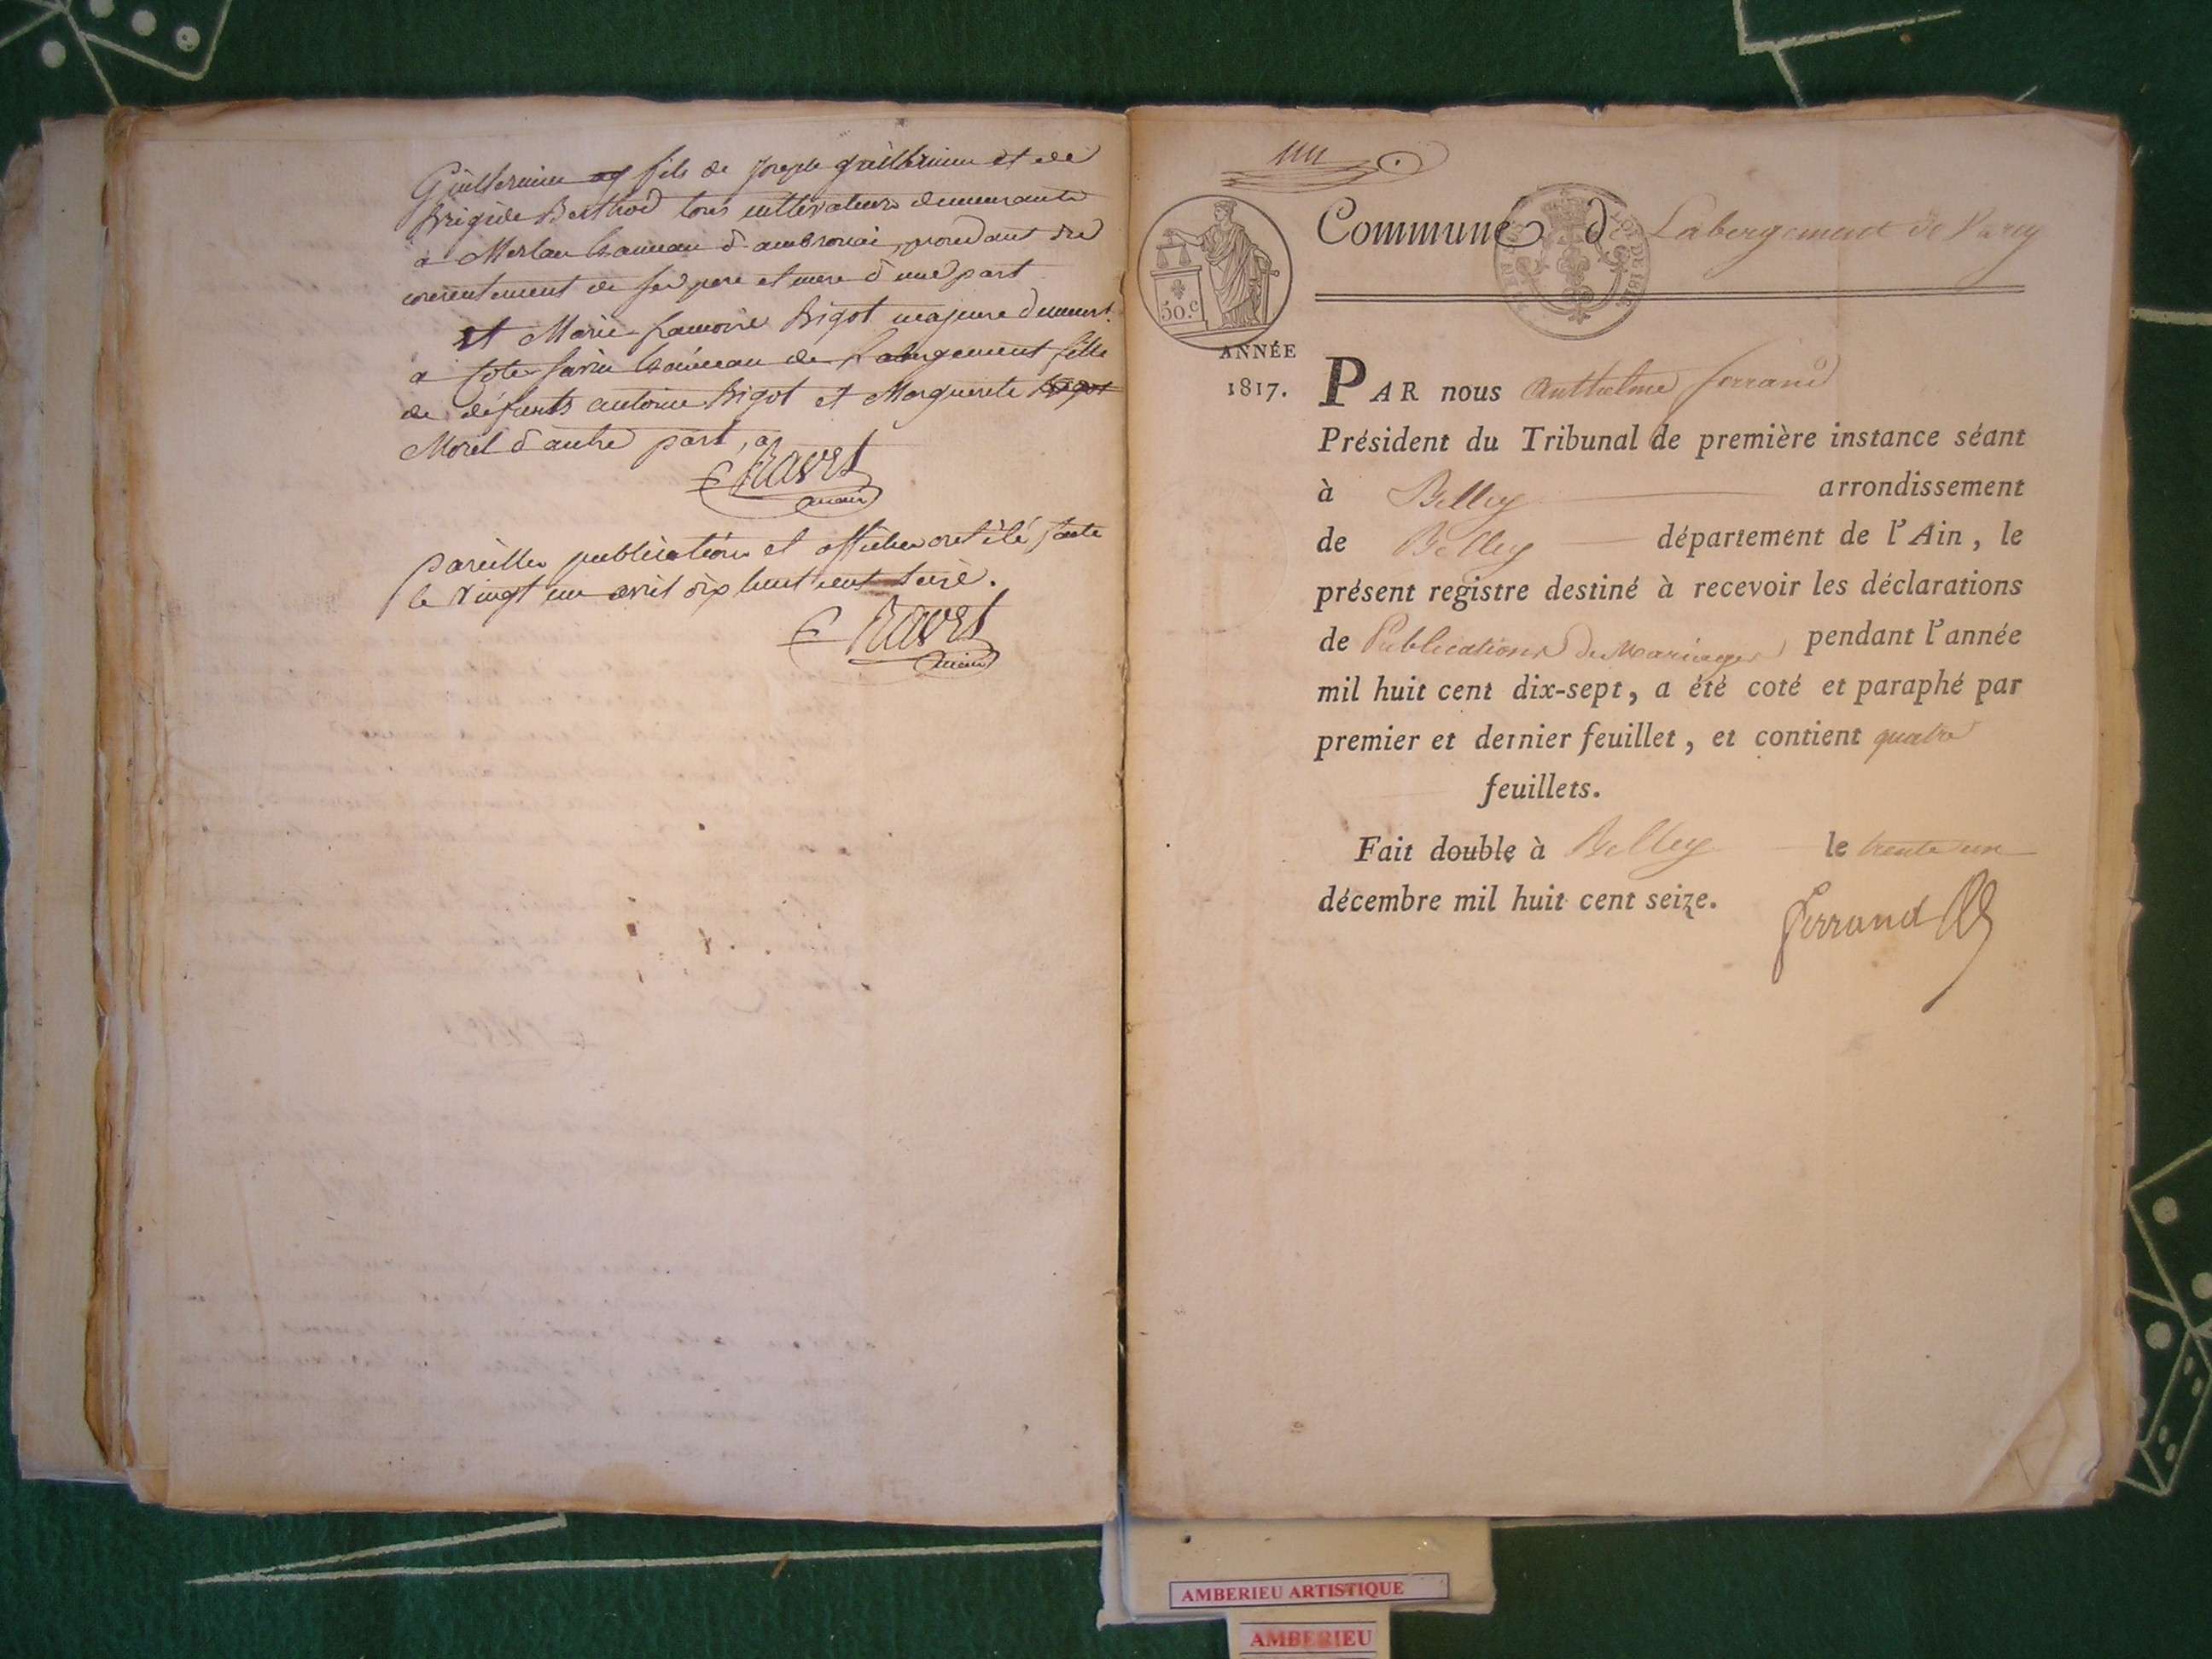 Guillermin fils de joseph guillermin et de
brigide Berthod tous cultivateurs demeurants
à Merlan hameau d'ambronai, procedant du
consentement de ses pere et mere d'une part
et Marie francoise Bigot majeure demeurt.
a Cote-Savin hameau de Labergement fille
de défunts antoine Bigot et Marguerite Bigot
Morel d'autre part,
Ravet
maire
pareilles publications et affiches ont été faite
le vingt un avril dix huit cent seize.
Ravet
maire
Commune de Labergement de Varey
50.c
ANNÉE
1817.
PAR nous Anthelme ferrand
Président du Tribunal de première instance séant
à Belley arrondissement
de Belley département de l'Ain, le
présent registre destiné à recevoir les déclarations
de Publications de Mariages pendant l'année
mil huit cent dix-sept, a été coté et paraphé par
premier et dernier feuillet, et contient quatre
feuillets.
Fait double à Belley le trente un
décembre mil huit cent seize.
ferrand
AMBERIEU ARTISTIQUE
AMBERIEU